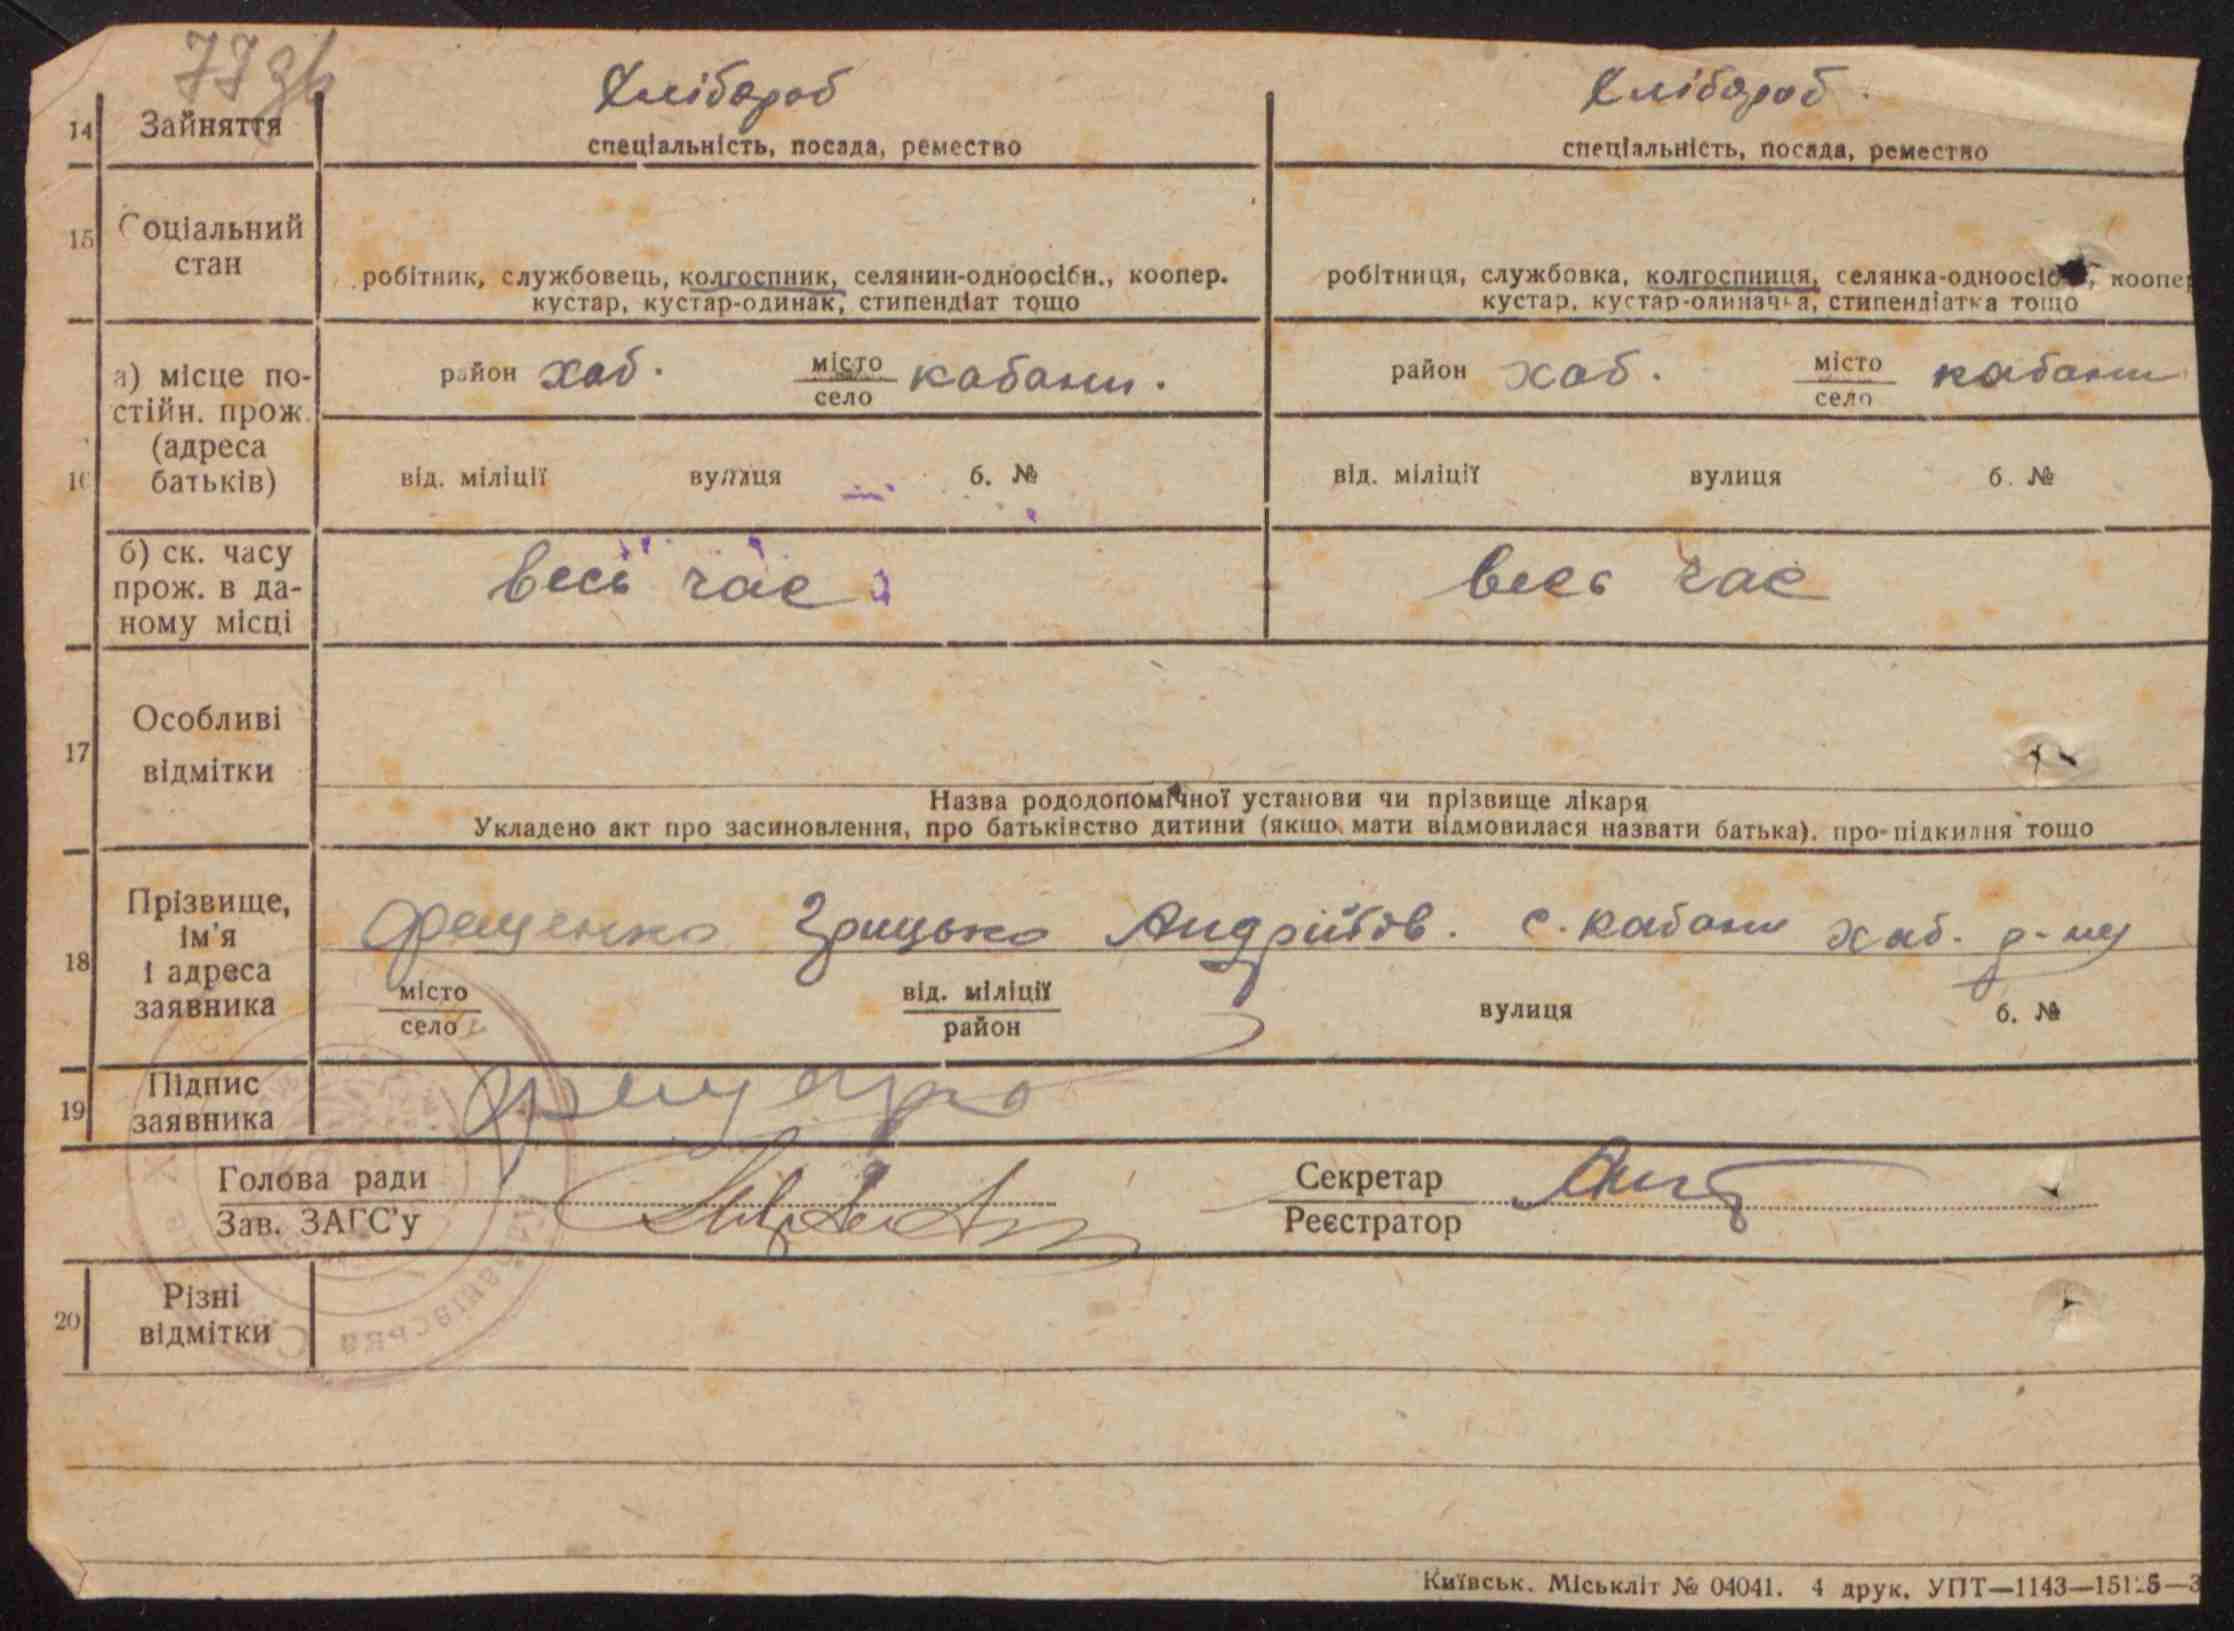 77зв
14 Зайняття Хлібороб Хлібороб
спеціальність, посада, ремество спеціальність, посада, ремество
15 Соціальний стан
робітник, службовець, колгоспник, селянин-одноосібн., коопер. робітниця, службовка, колгоспниця, коопер
кустар, кустар-одинак, стипендіат тощо кустар, кустар-одиначка, стипендіатка тощо
16 а) місце по-
стійн. прож.
(адреса
батьків)
район хаб. місто
село кабани. район хаб. місто
село кабани
від. міліції вулиця б. № від. міліції вулиця б. №
б) ск. часу
прож. в да-
ному місці
весь час весь час
17 Особливі
відмітки
Назва рододопомічної установи чи прізвище лікаря
Укладено акт про засиновлення, про батьківство дитини (якщо мати відмовилася назвати батька), про підкидня тощо
18 Прізвище,
ім'я
і адреса
заявника
Фещенко Грицько Андрійов. с. кабани хаб. р-ну
місто
село від. міліції
район вулиця б. №
19 Підпис
заявника
Голова ради
Зав. ЗАГС'у
Секретар
Реєстратор
20 Різні
відмітки
Київськ. Міськліт № 04041. 4 друк. УПТ—1143—15125—3